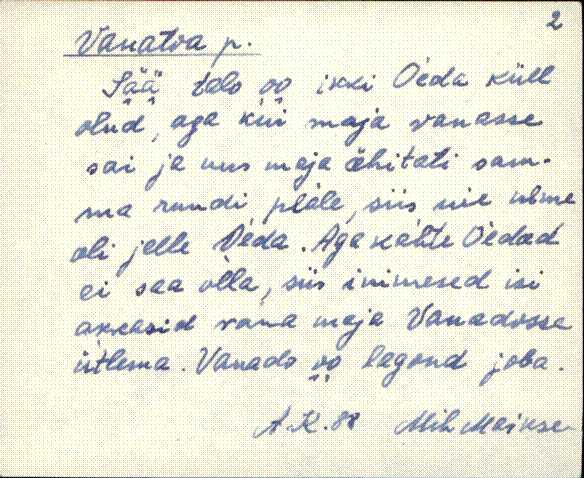 2
Vanatoa p.
Sää talo oo ikki Oeda küll
olnd, aga küi maja vanasse
sai ja uus maja ehitati sam-
ma rundi pläle, siis uie nime
oli jelle Oeda. Aga kahte Oedad
ei saa olla, siis inimesed isi
akkasid vana maja Vanadosse
ütlema. Vanado oo lagond joba.
A.K. 88 Mih Maikse